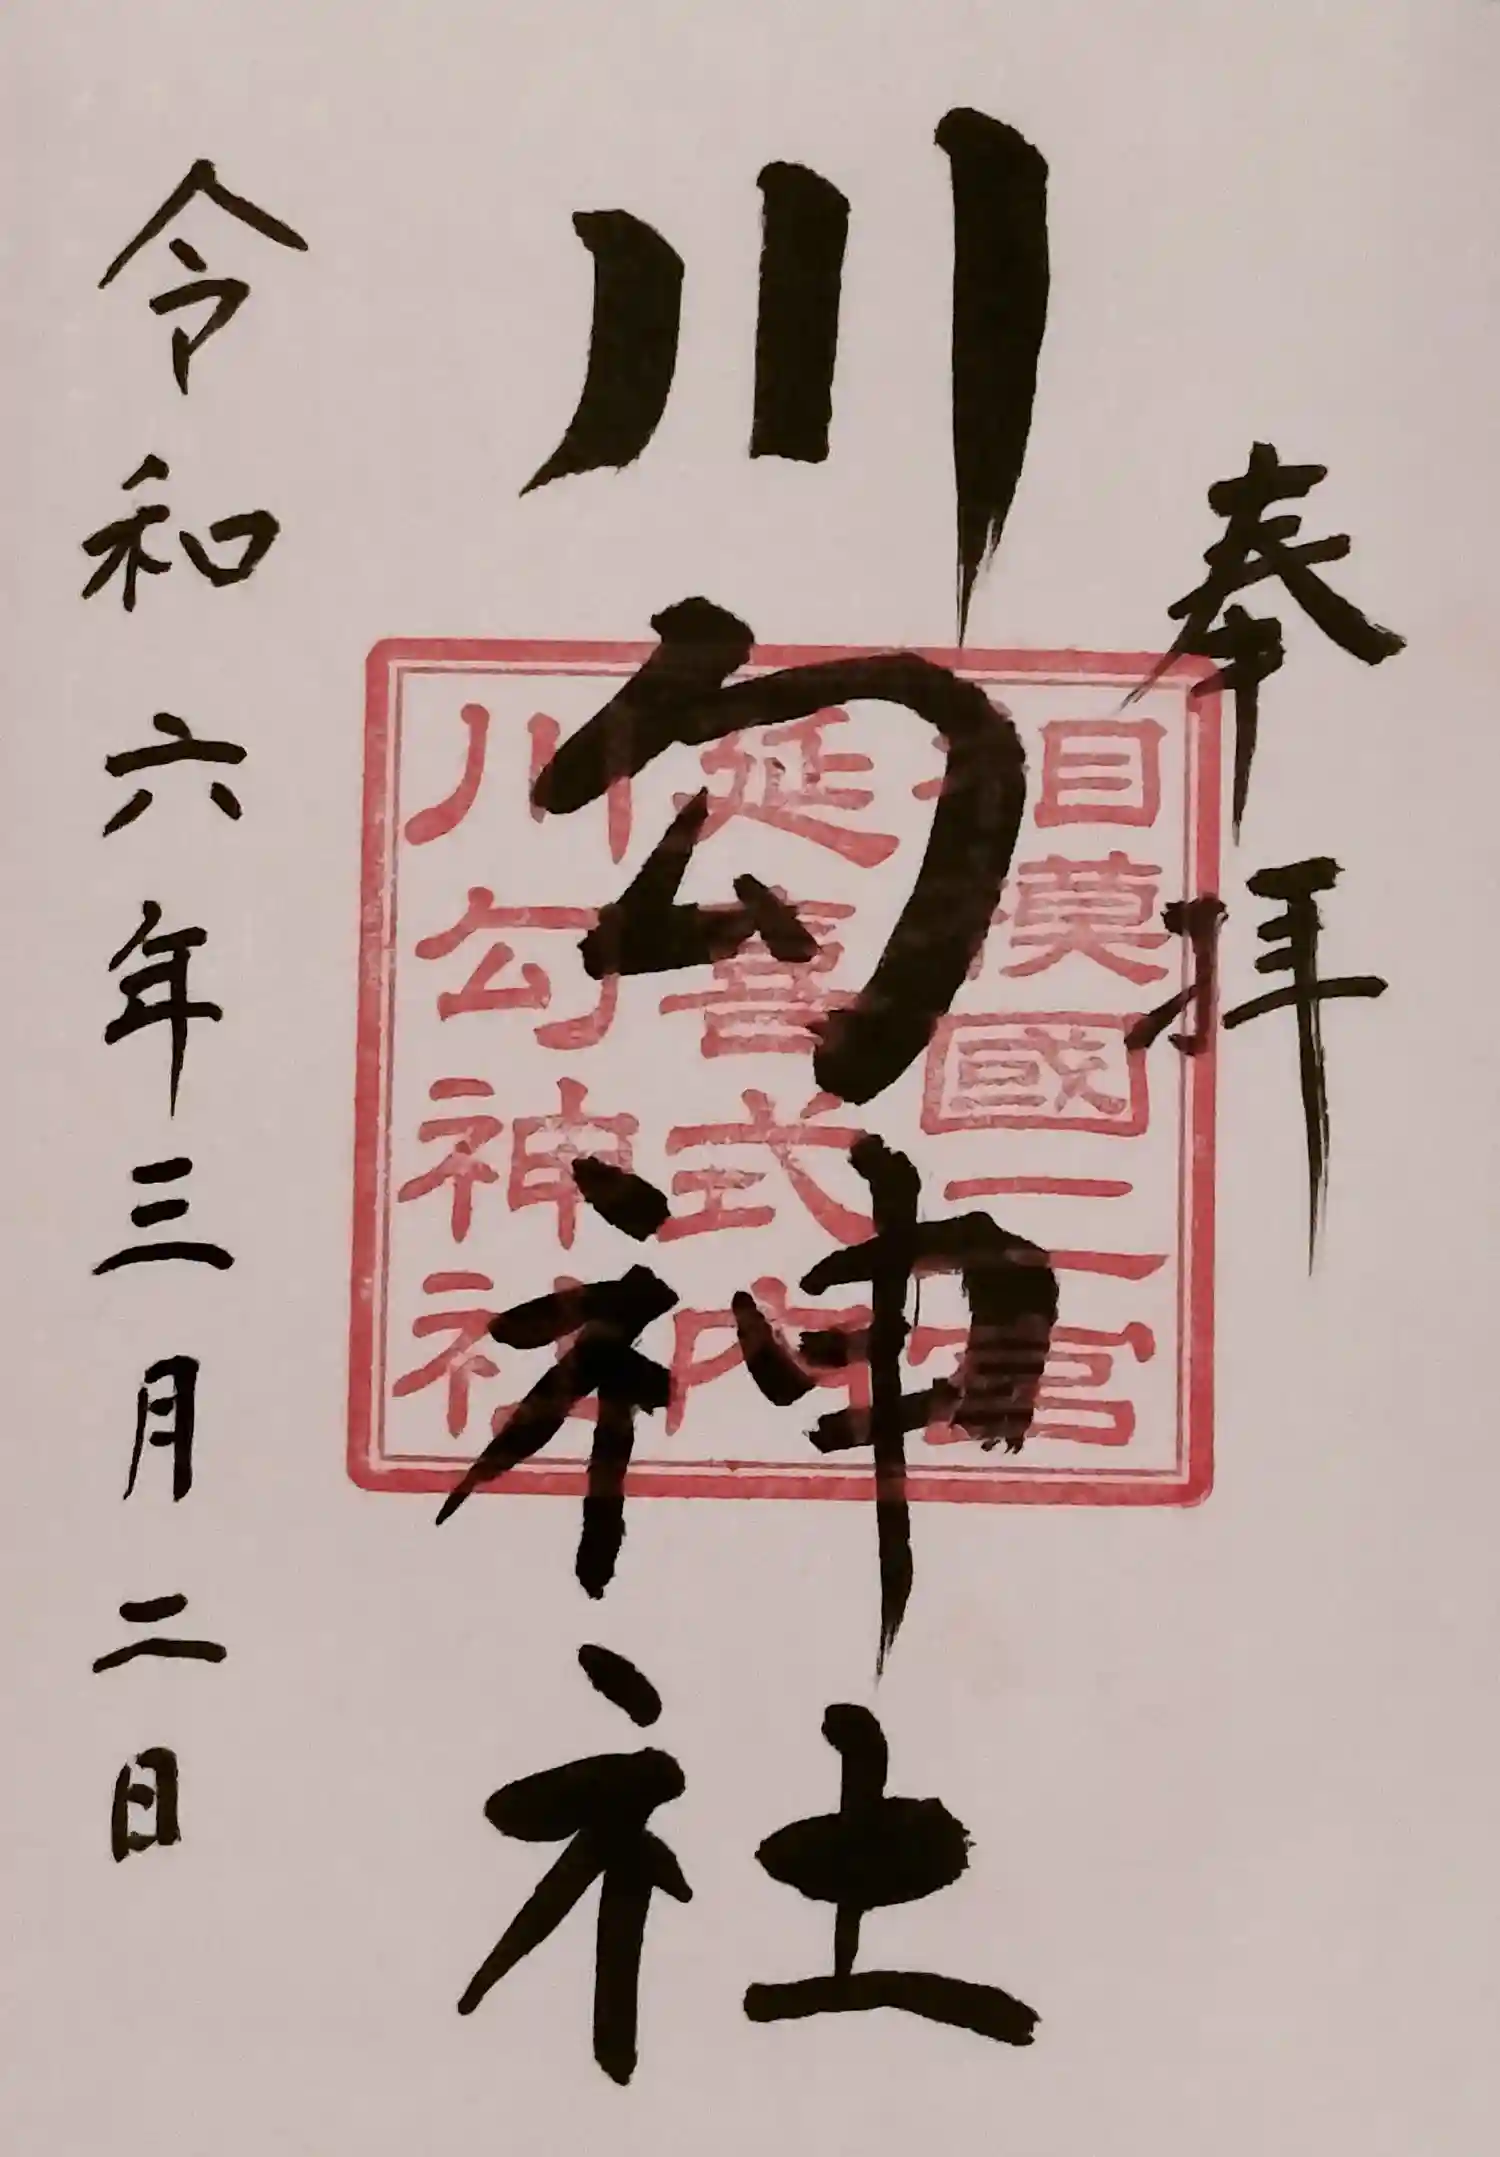 奉拝
川勾神社
相模國二宮
延喜式内
川勾神社
令和六年三月二日